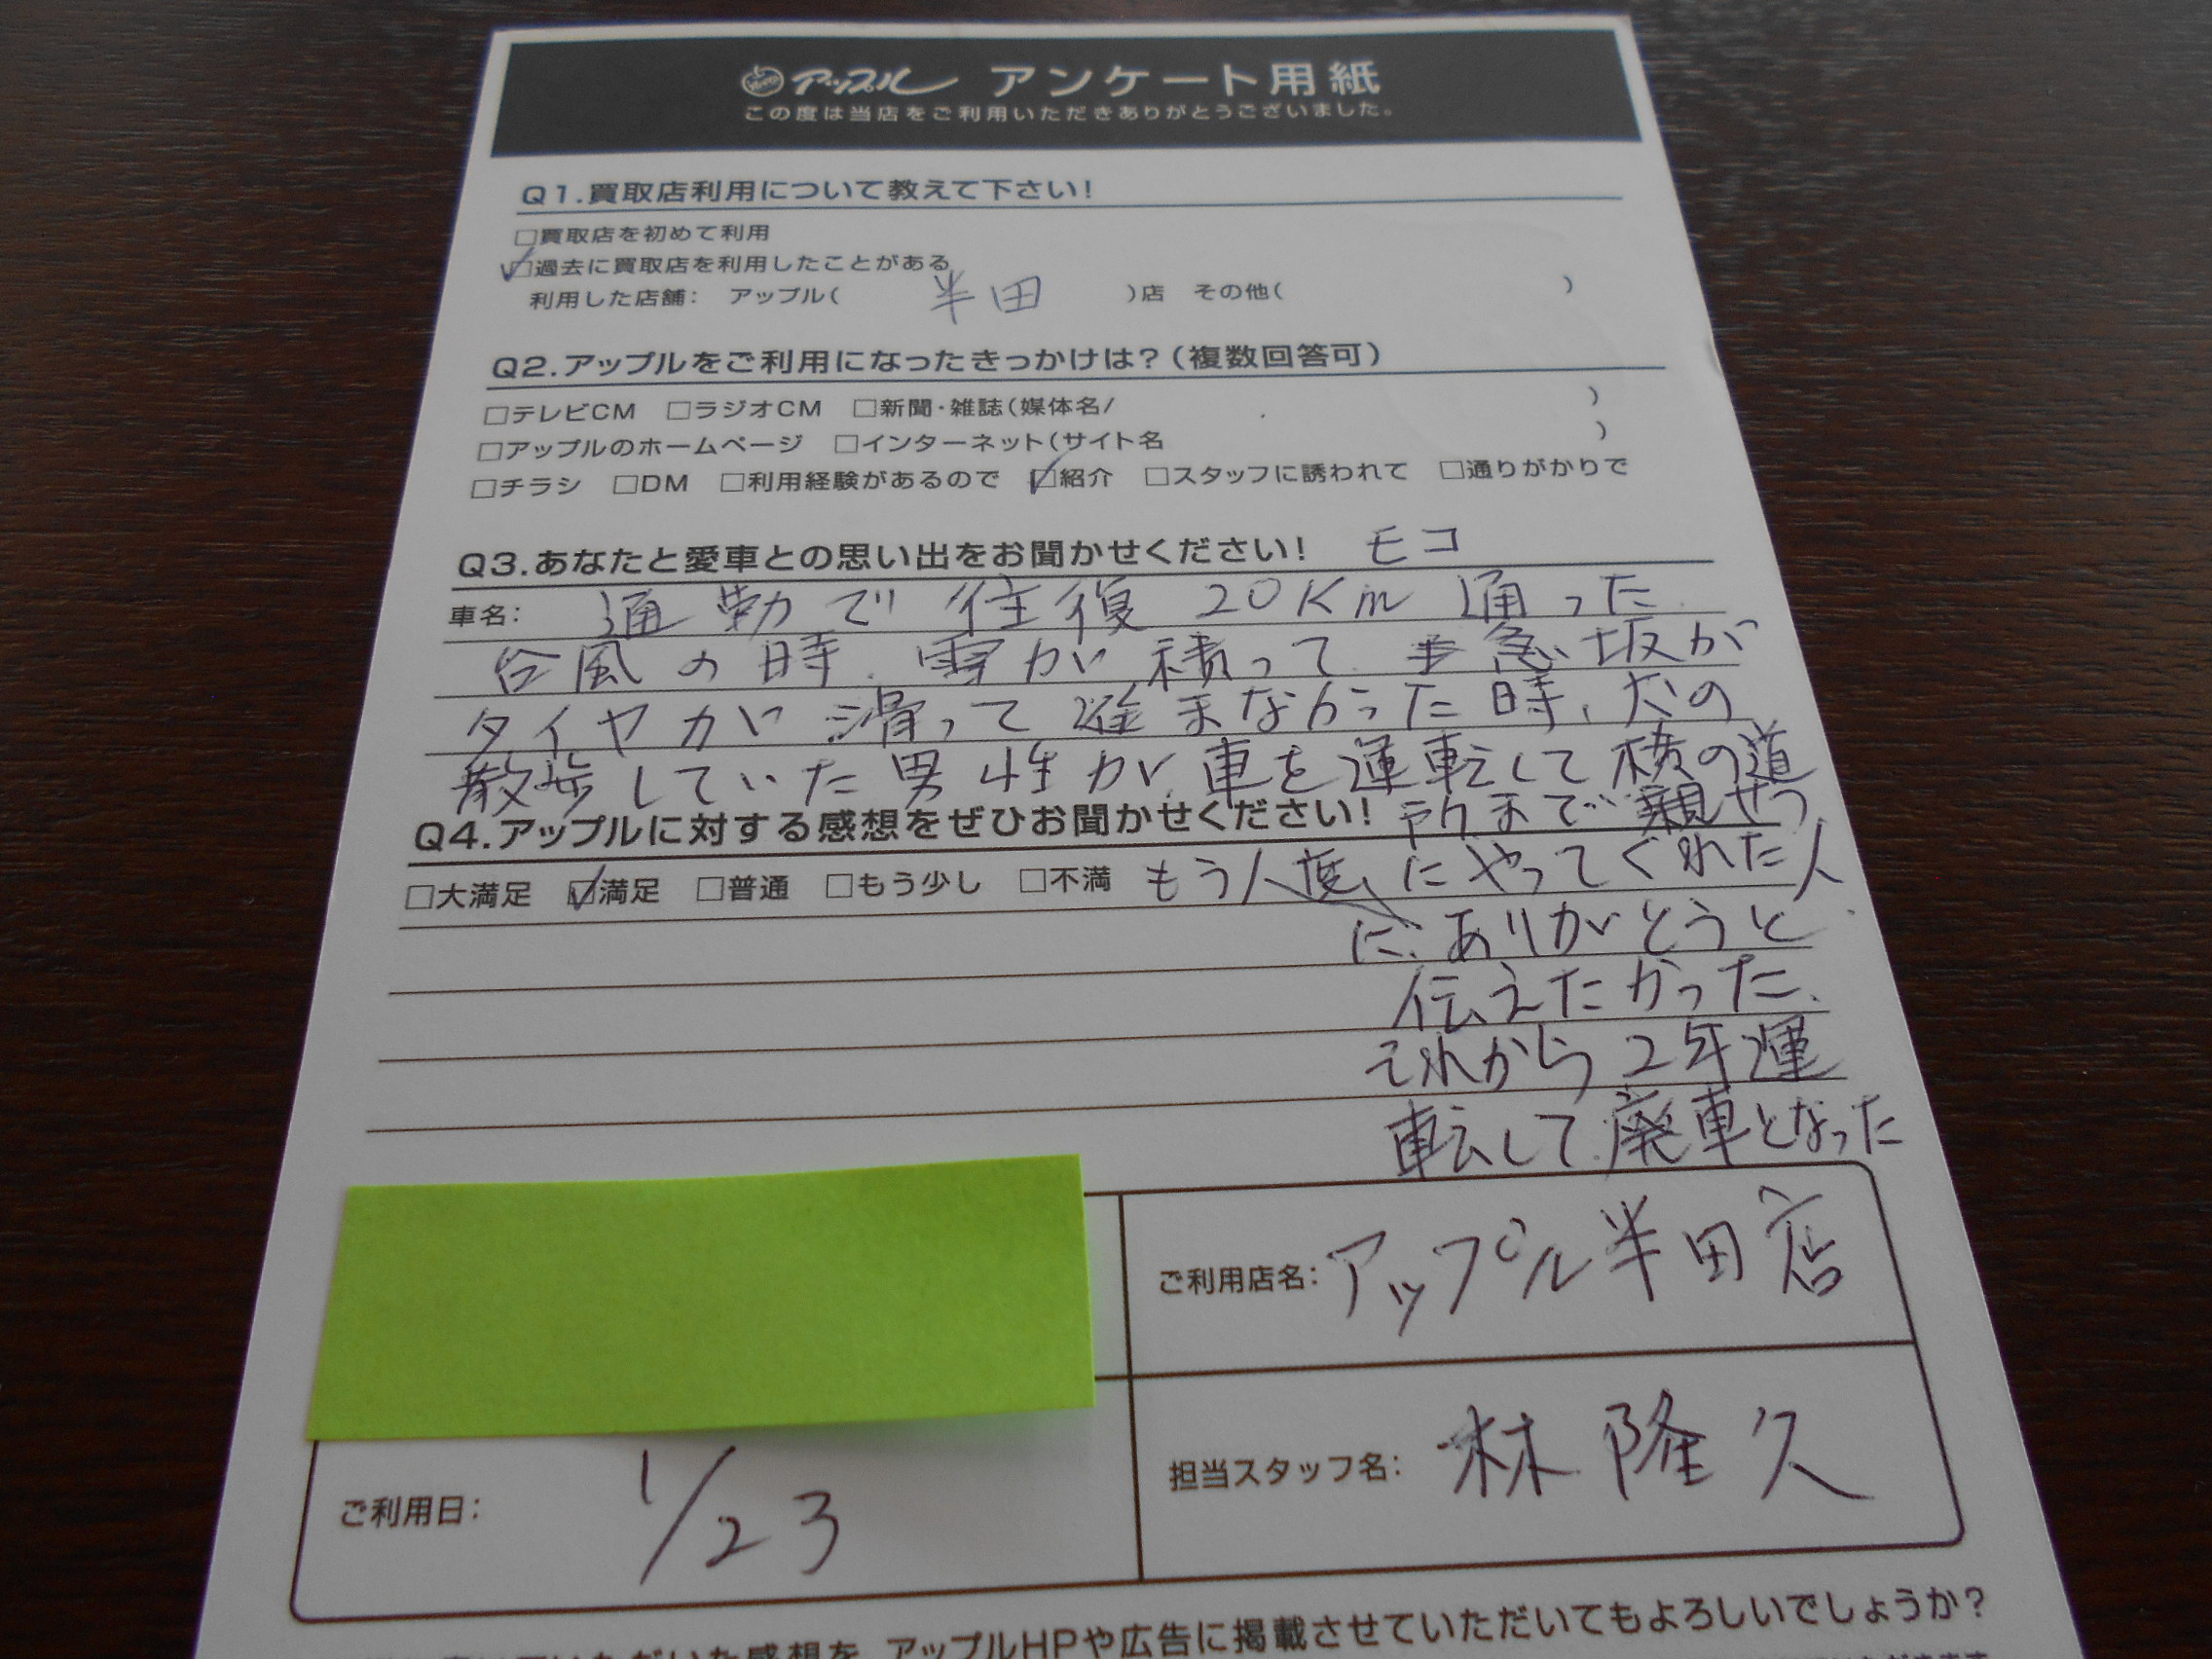 アップル アンケート用紙
この度は当店をご利用いただきありがとうございました。
Q1.買取店利用について教えて下さい!
□買取店を初めて利用
☑過去に買取店を利用したことがある
利用した店舗: アップル( 半田 )店 その他( )
Q2.アップルをご利用になったきっかけは?(複数回答可)
□テレビCM □ラジオCM □新聞・雑誌(媒体名/ )
□アップルのホームページ □インターネット(サイト名 )
□チラシ □DM □利用経験があるので ☑紹介 □スタッフに誘われて □通りがかりで
Q3.あなたと愛車との思い出をお聞かせください! モコ
車名: 通勤で往復20Km通った
台風の時、雪が積って 急坂が
タイヤが滑って進まなかった時、犬の
散歩していた男性が、車を運転して横の道
Q4.アップルに対する感想をぜひお聞かせください! まで親せつ
□大満足 ☑満足 □普通 □もう少し □不満 もう一度、にやってくれた人
に、ありがとうと
伝えたかった、
それから2年運
転して、廃車となった
ご利用店名: アップル半田店
ご利用日: 1/23
担当スタッフ名: 林隆久
いただいた感想を、アップルHPや広告に掲載させていただいてもよろしいでしょうか?